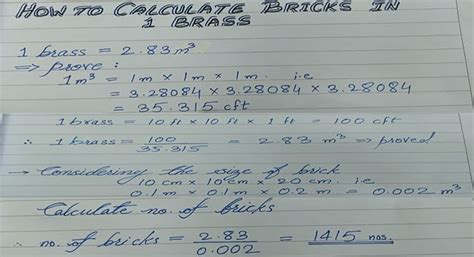 HOW TO CALCULATE BRICKS IN
1 BRASS
1 brass = 2.83 m³
⇒ prove :
1m³ = 1m × 1m × 1m. i.e
= 3.28084 × 3.28084 × 3.28084
= 35.315 cft
1 brass = 10 ft × 10 ft × 1 ft = 100 cft
∴ 1 brass = 100/35.315 = 2.83 m³ ⇒ proved
→ Considering the size of brick
10 cm × 10 cm × 20 cm. i.e
0.1 m × 0.1 m × 0.2 m = 0.002 m³
Calculate no. of bricks
∴ no. of bricks = 2.83/0.002 = 1415 nos.